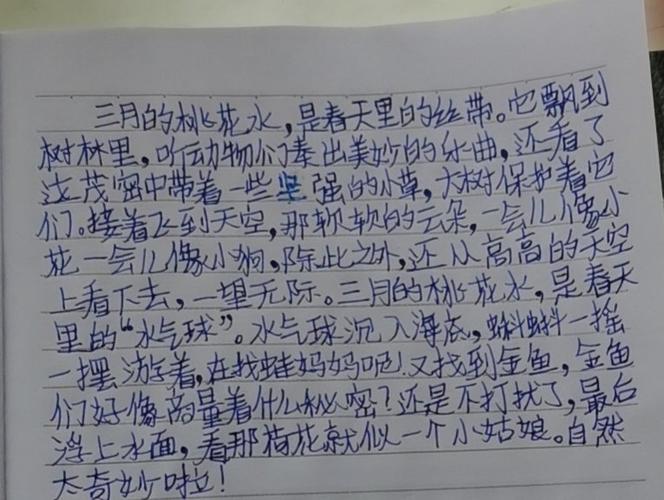 三月的桃花水，是春天里的丝带。它飘到
树林里，听动物们奏出美妙的乐曲，还看了
这茂密中带着一些坚强的小草，大树保护着它
们。接着飞到天空，那软软的云朵，一会儿像小
花一会儿像小狗，除此之外，还从高高的天空
上看下去，一望无际。三月的桃花水，是春天
里的“水气球”。水气球沉入海底，蝌蝌一摇
一摆游着，在找蛙妈妈呢！又找到金鱼，金鱼
们好像商量着什么秘密？还是不打扰了，最后
浮上水面，看那荷花就似一个小姑娘。自然
太奇妙啦！